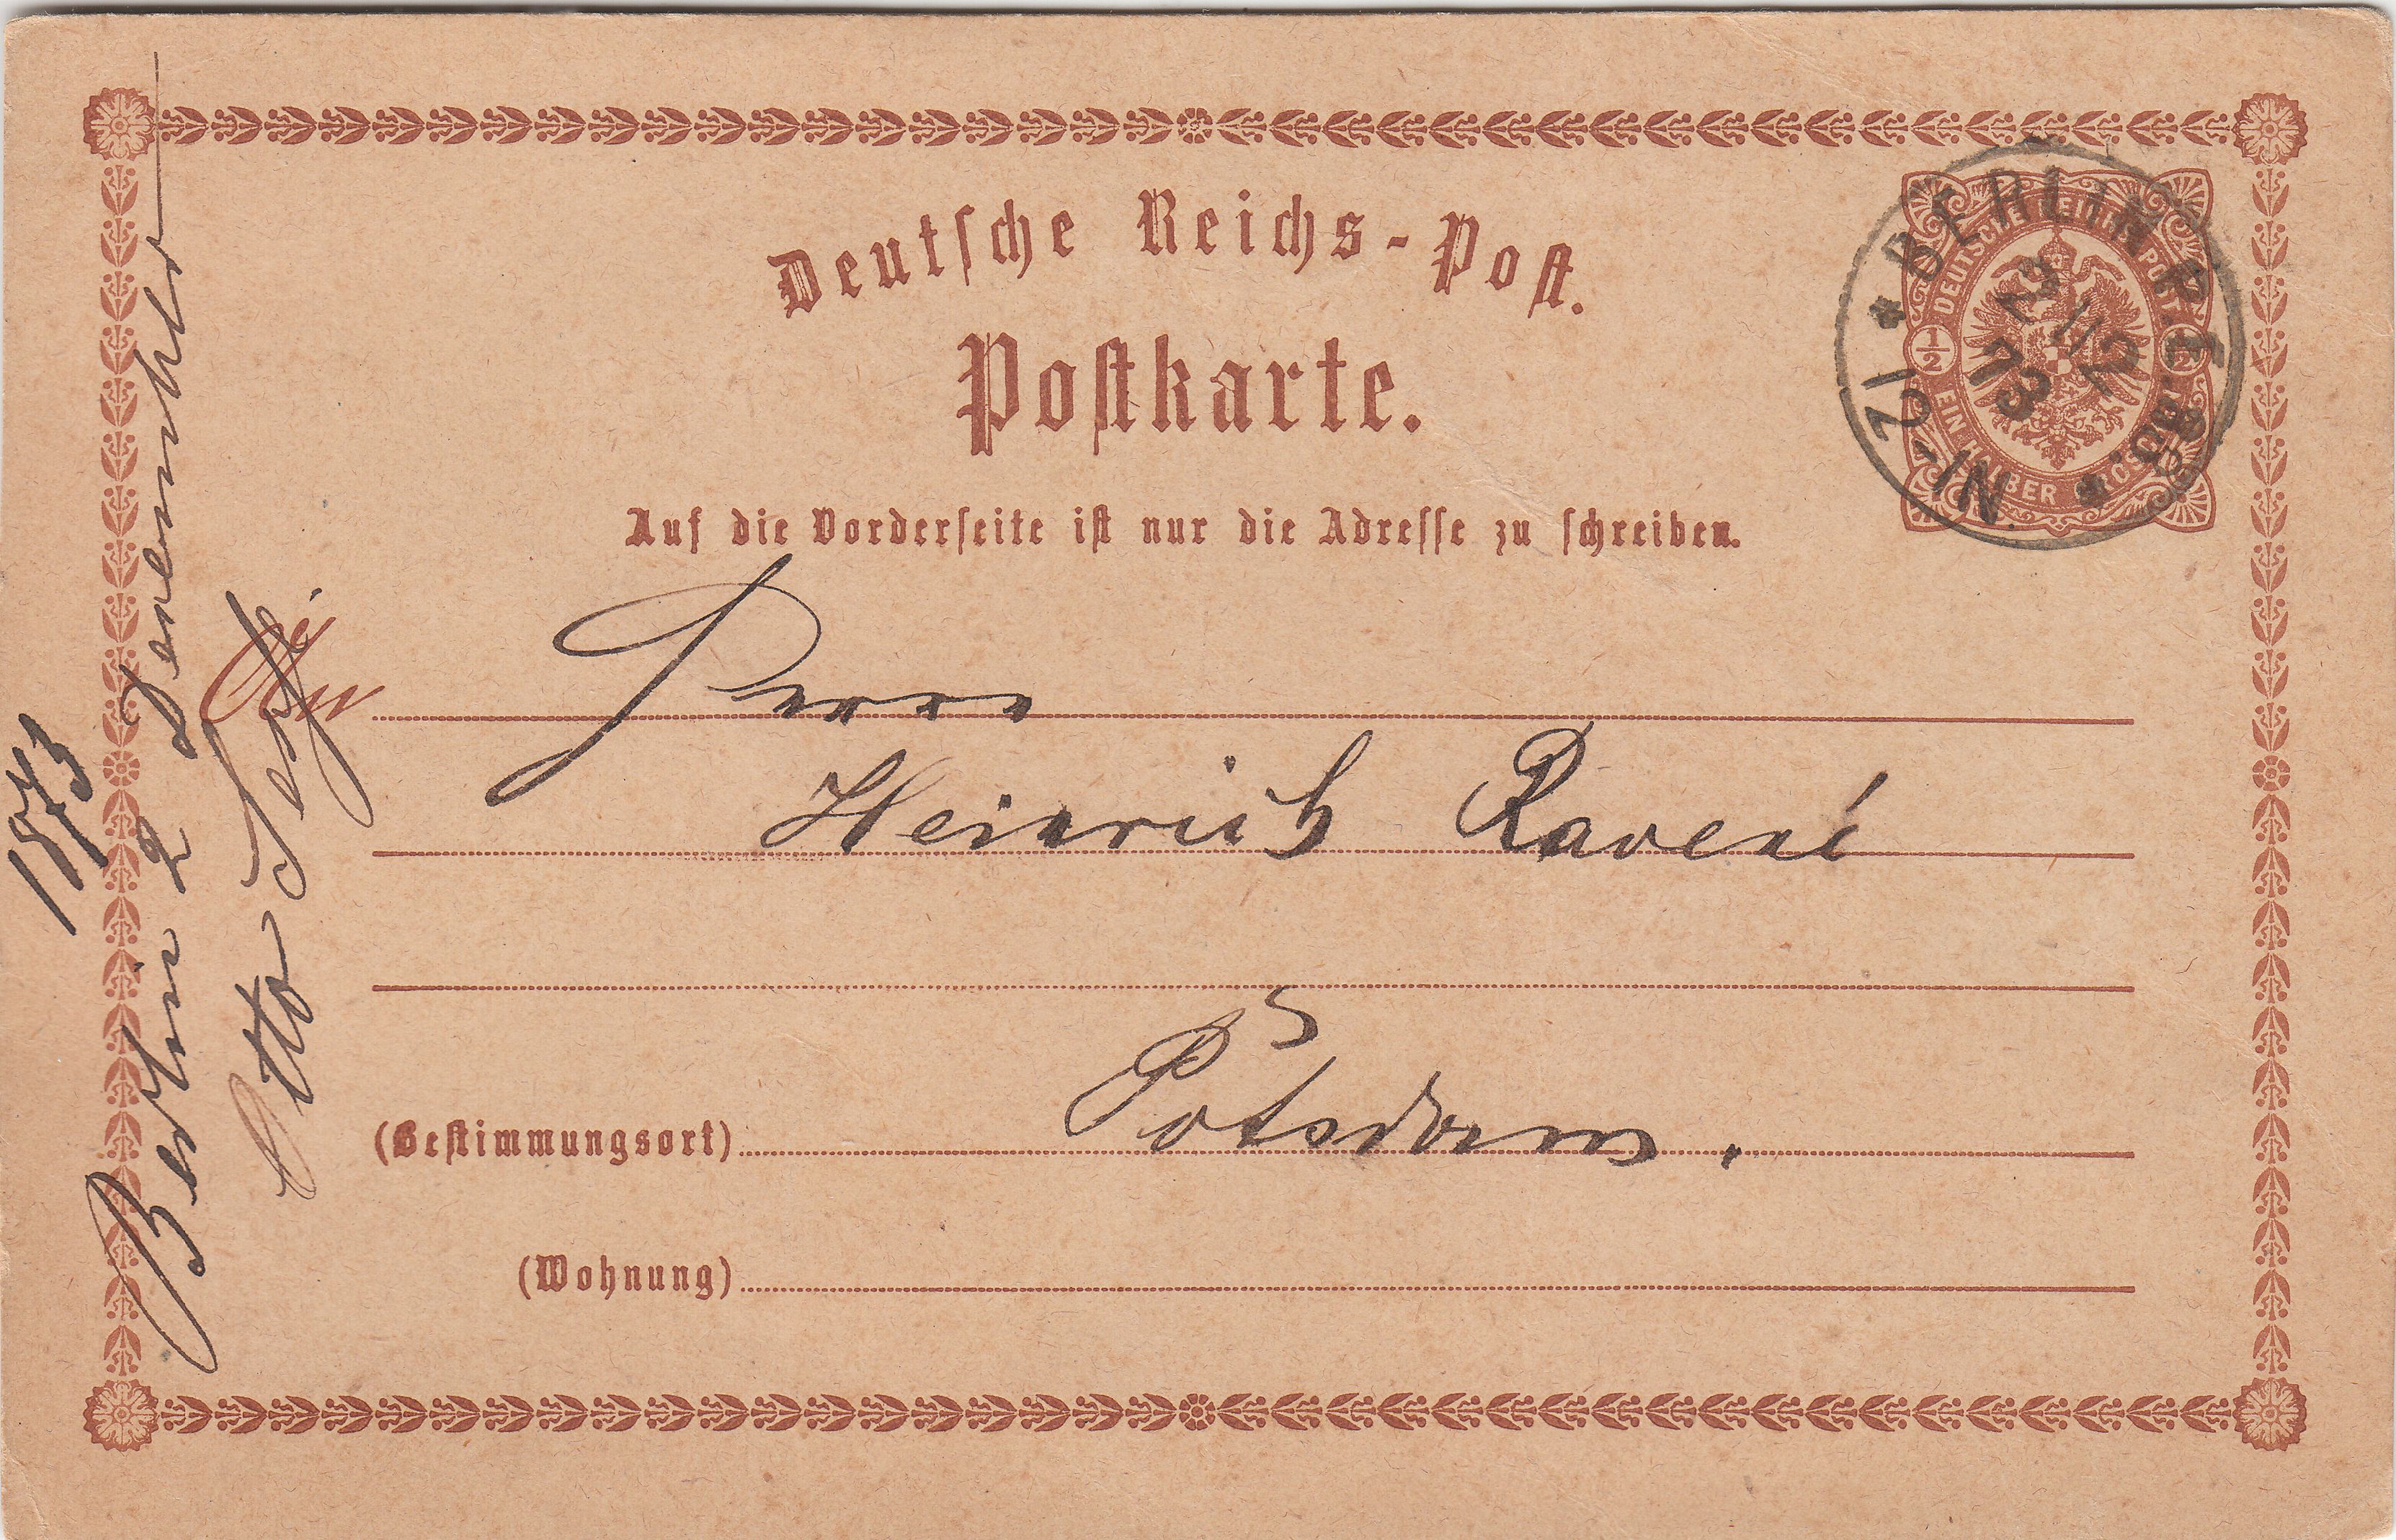 Deutsche Reichs-Post.
Postkarte.
Auf die Vorderseite ist nur die Adresse zu schreiben.
DEUTSCHE REICHS POST
½ ½
EIN HALBER GROSCHEN
BERLIN P.E.
2 12
73
12-1N.
An Herrn
Heinrich Ravené
(Bestimmungsort) Potsdam.
(Wohnung)
1873
Berlin 2
Otto